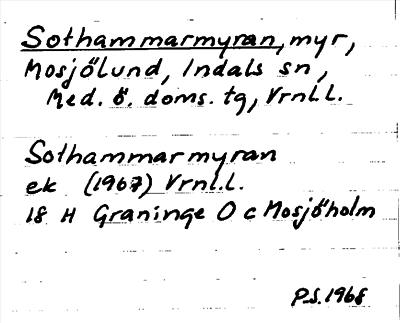 Sothammarmyran, myr,
Mosjölund, Indals sn,
Med. ö. doms. tg, Vrnl.L.
Sothammarmyran
ek (1967) Vrnl.L.
18 H Graninge O c Mosjöholm
P.S. 1968